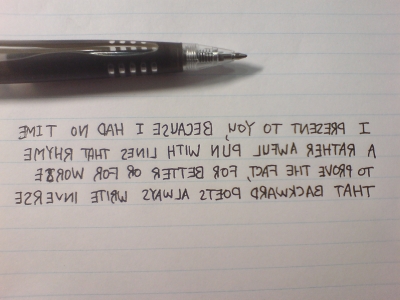 I PRESENT TO YOU, BECAUSE I HAD NO TIME
A RATHER AWFUL PUN WITH LINES THAT RHYME
TO PROVE THE FACT, FOR BETTER OR FOR WORSE
THAT BACKWARD POETS ALWAYS WRITE INVERSE